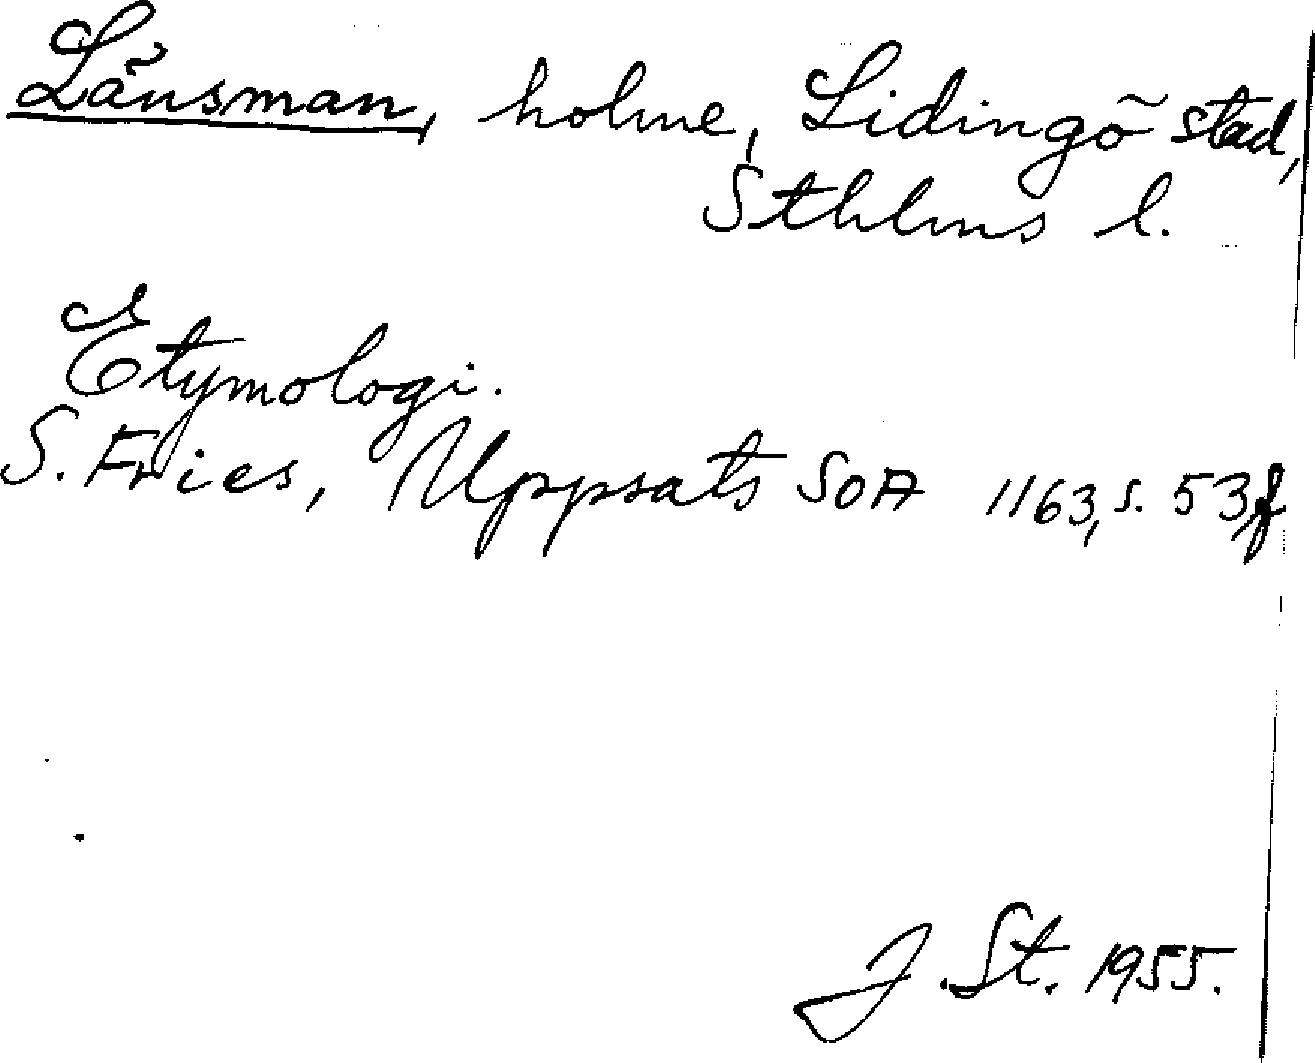 Länsman, holme, Lidingö stad,
Sthlms l.
Etymologi.
S. Fries, Uppsats SOA 1163, s. 53 f
J. St. 1955.